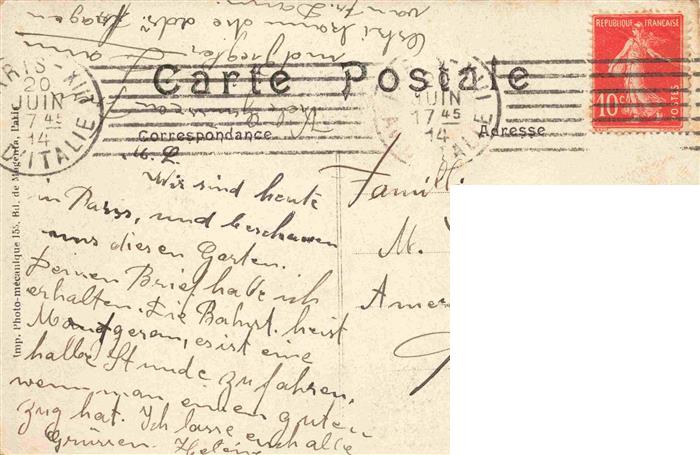 Carte Postale
Correspondance
Adresse
RÉPUBLIQUE FRANÇAISE
10c
POSTES
PARIS - XIII
20
JUIN
17 45
14
D'ITALIE
JUIN
17 45
14
Imp. Photo-mécanique 155, Bd. de Magenta, Paris
M. L.
Wir sind heute
in Parys, und beschauen
uns diesen Garten.
Deinen Brief habe ich
erhalten. Die Bahnst. heist
Montgeron, es ist eine
halbe Stunde zu fahren,
wenn man einen guten
zug hat. Ich lasse euch alle
Grüssen. Helén
Famili
M.
Amer